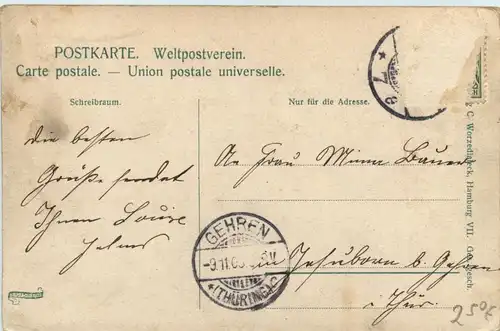 POSTKARTE. Weltpostverein.
Carte postale. — Union postale universelle.
Schreibraum.
Nur für die Adresse.
die besten
Grüße sendet
Ihnen Louise
An Frau Minna Bauer
in Jesuborn b. Gehren
i. Thür.
GEHREN
(THÜRINGEN)
C. Worzedialeck, Hamburg VII.